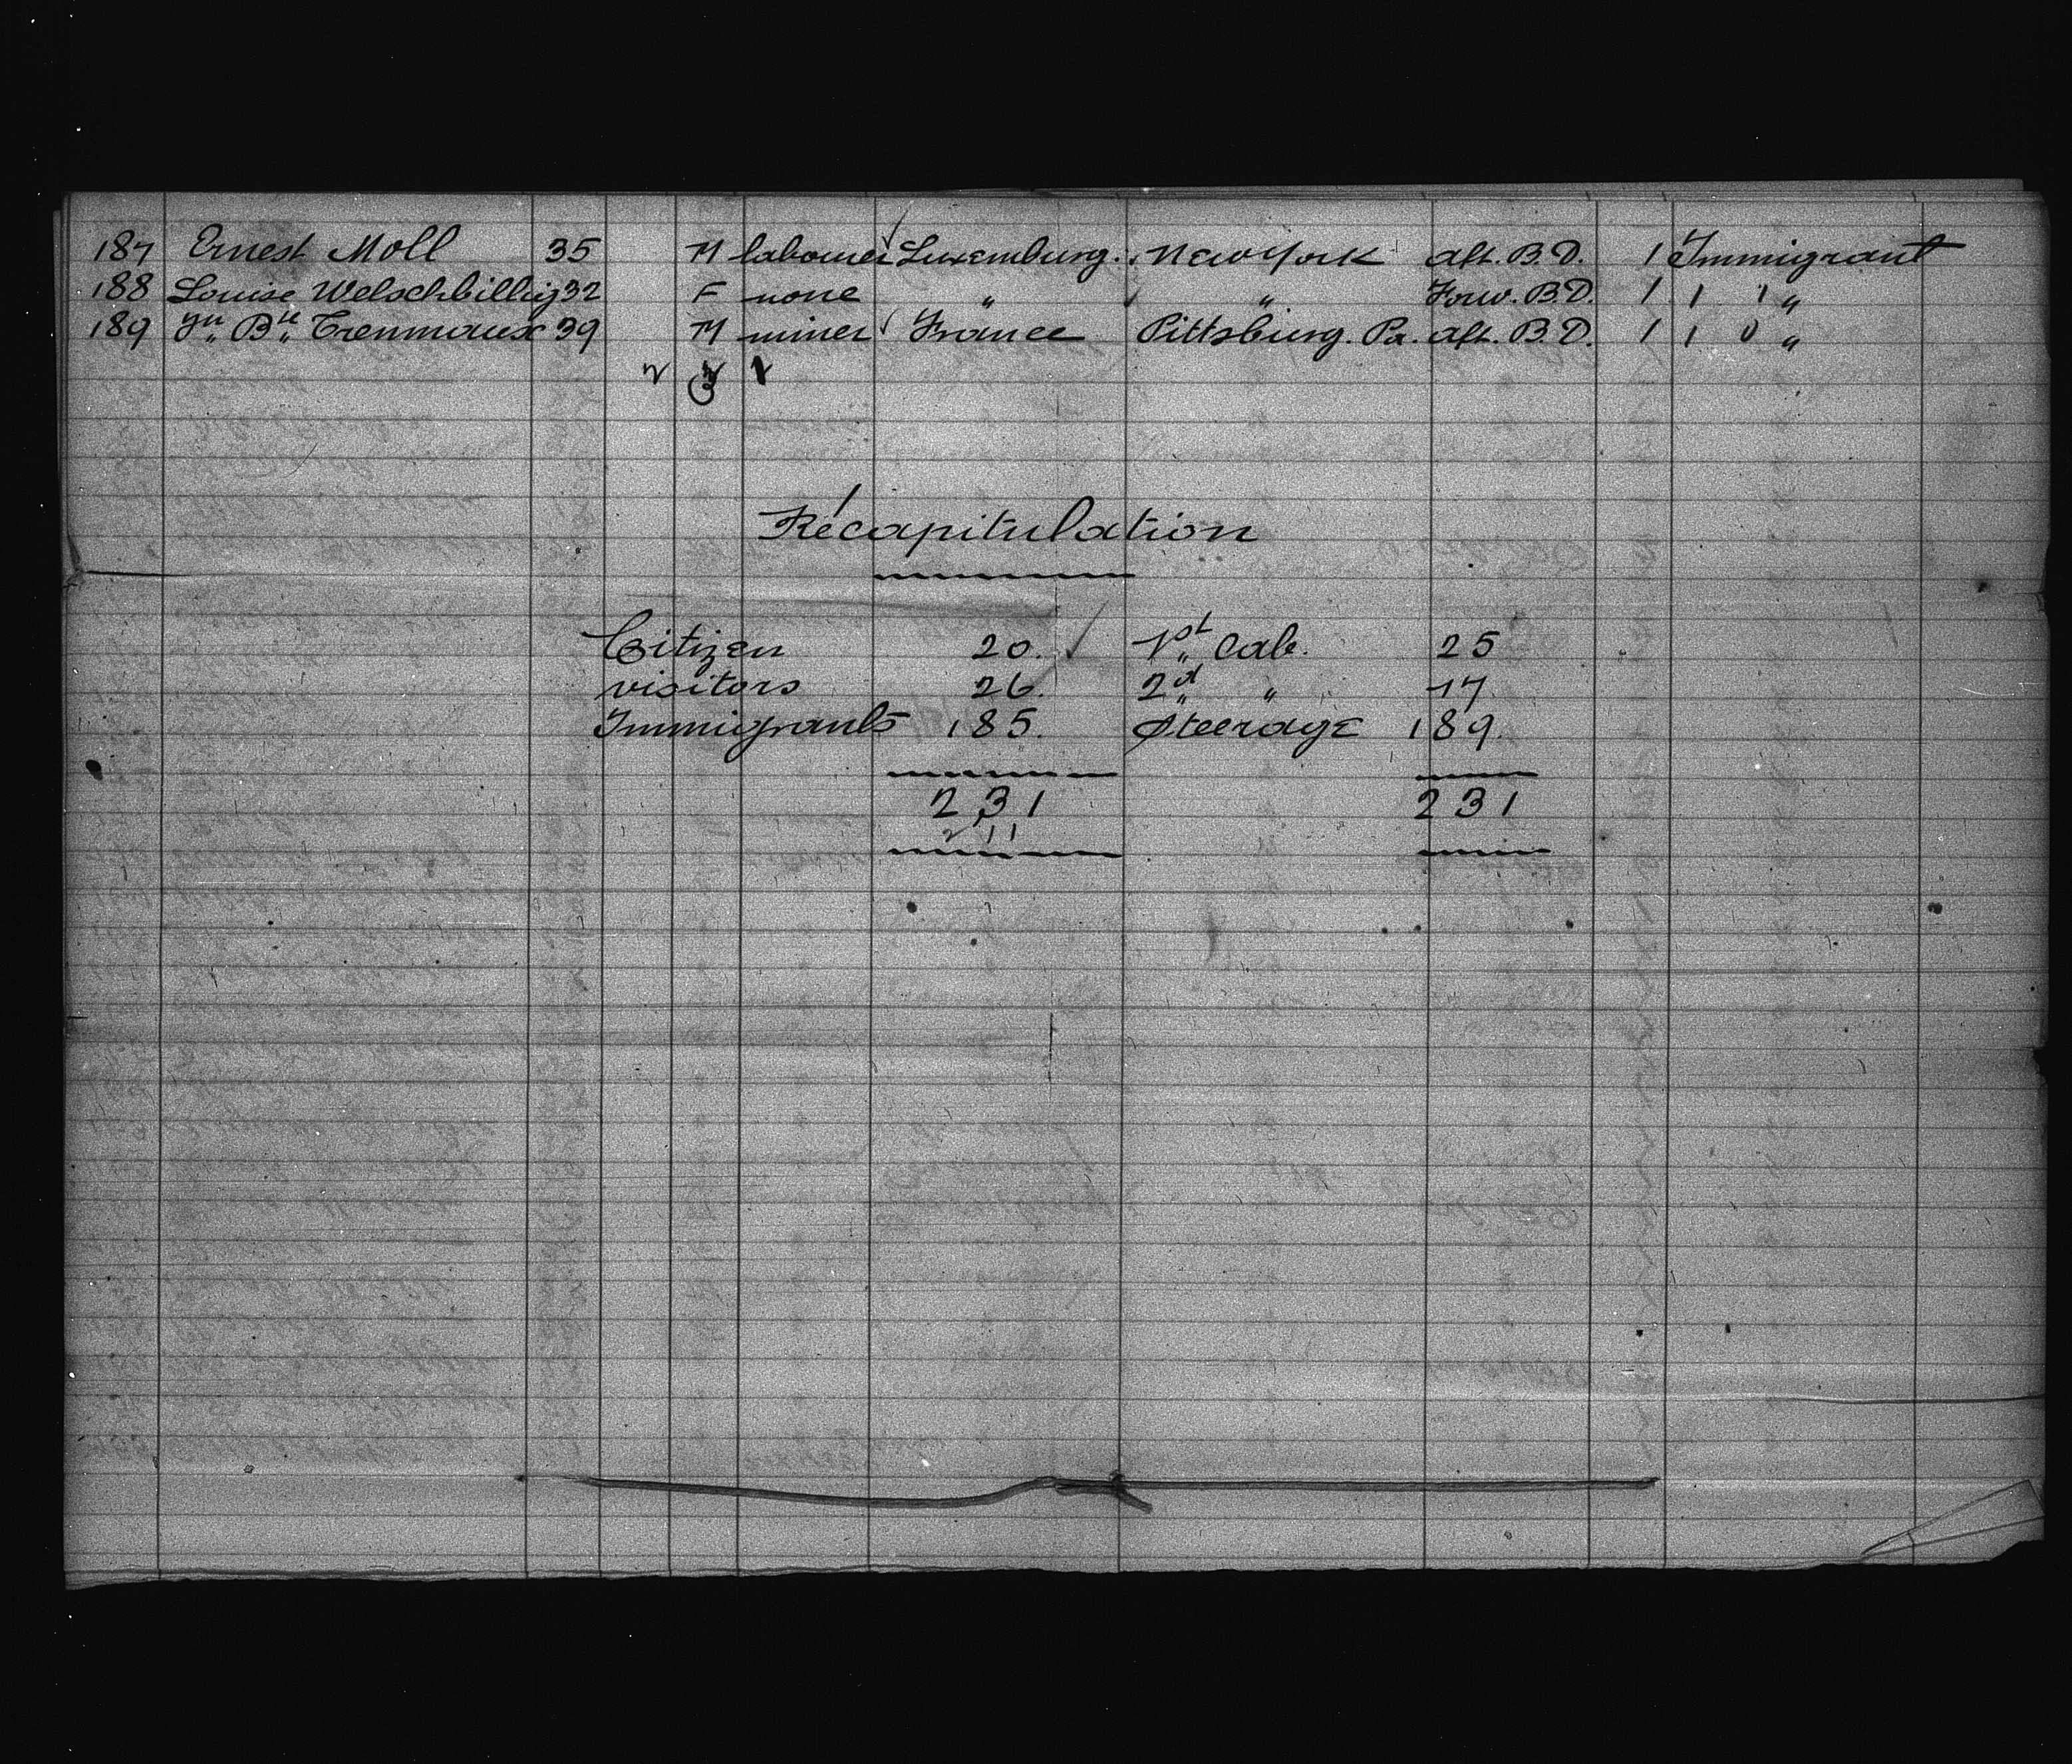 187 Ernest Moll 35 M labourer Luxemburg. New York aft. B.D. 1 Immigrant
188 Louise Welschbillig 32 F none " " Forw. B.D. 1 1 1 "
189 Jn. Bte Trenmaux 39 M miner France Pittsburg. Pa. aft. B.D. 1 1 0 "
3
Récapitulation
Citizen 20. 1st Cab. 25
visitors 26. 2d " 17
Immigrants 185. Steerage 189.
231 231
211